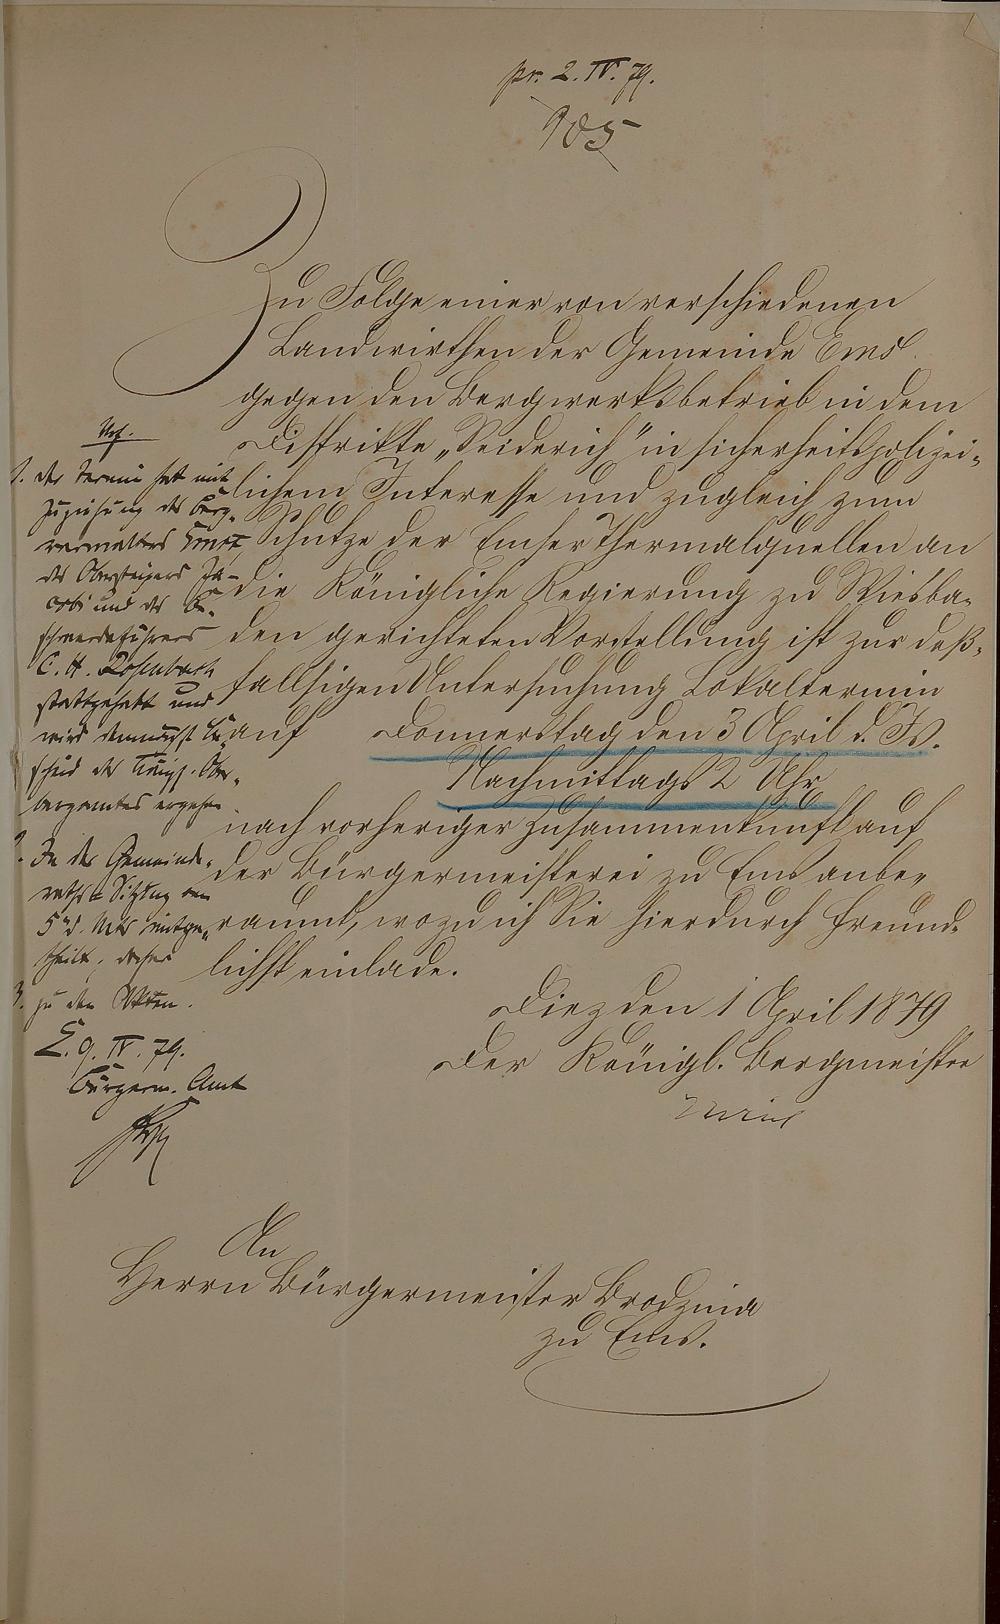 pr. 2. IV. 79.
905
Zu Folge einer von verschiedenen
Landwirthen der Gemeinde Ems
gegen den Bergwerksbetrieb in dem
Distrikte „Seiderich" in sicherheitspolizei-
lichem Interesse und zugleich zum
Schutze der Emser Thermalquellen an
die Königliche Regierung zu Wiesba-
den gerichteten Vorstellung ist zur deß-
fallsigen Untersuchung Lokaltermin
auf Donnerstag den 3 April d. Js.
Nachmittags 2 Uhr
nach vorheriger Zusammenkunft auf
der Bürgermeisterei zu Ems anbe-
raumt, wozu ich Sie hierdurch freund-
lichst einlade.
Diez den 1 April 1879
Der Königl. Bergmeister
An
Herrn Bürgermeister
zu Ems.
Vfg.
1. Der Termin hat mit
Zuziehung des Berg-
verwalters
des Obersteigers Ja-
cobi und des Be-
schwerdeführers
C. H. Rosenbach
stattgehabt und
wird demnächst Be-
scheid des Königl. Ober-
bergamtes ergehen.
2. In der Gemeinde-
raths-Sitzung vom
5" d. Mts mitge-
theilt, daher
3. zu den Akten.
E. 9. IV. 79.
Bürgerm. Amt